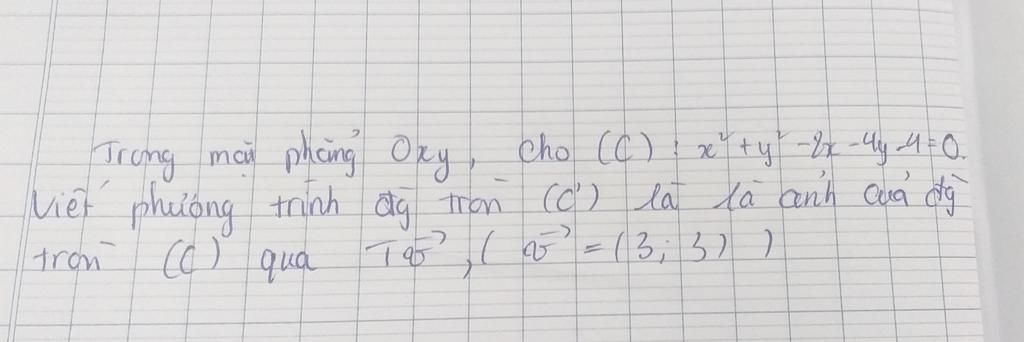 Trong mặt phẳng Oxy, cho (C): x² + y² - 2x - 4y - 4 = 0.
Viết phương trình đg tròn (C') là là ảnh của đg
tròn (C) qua Tv⃗, ( v⃗ = (3; 3) )